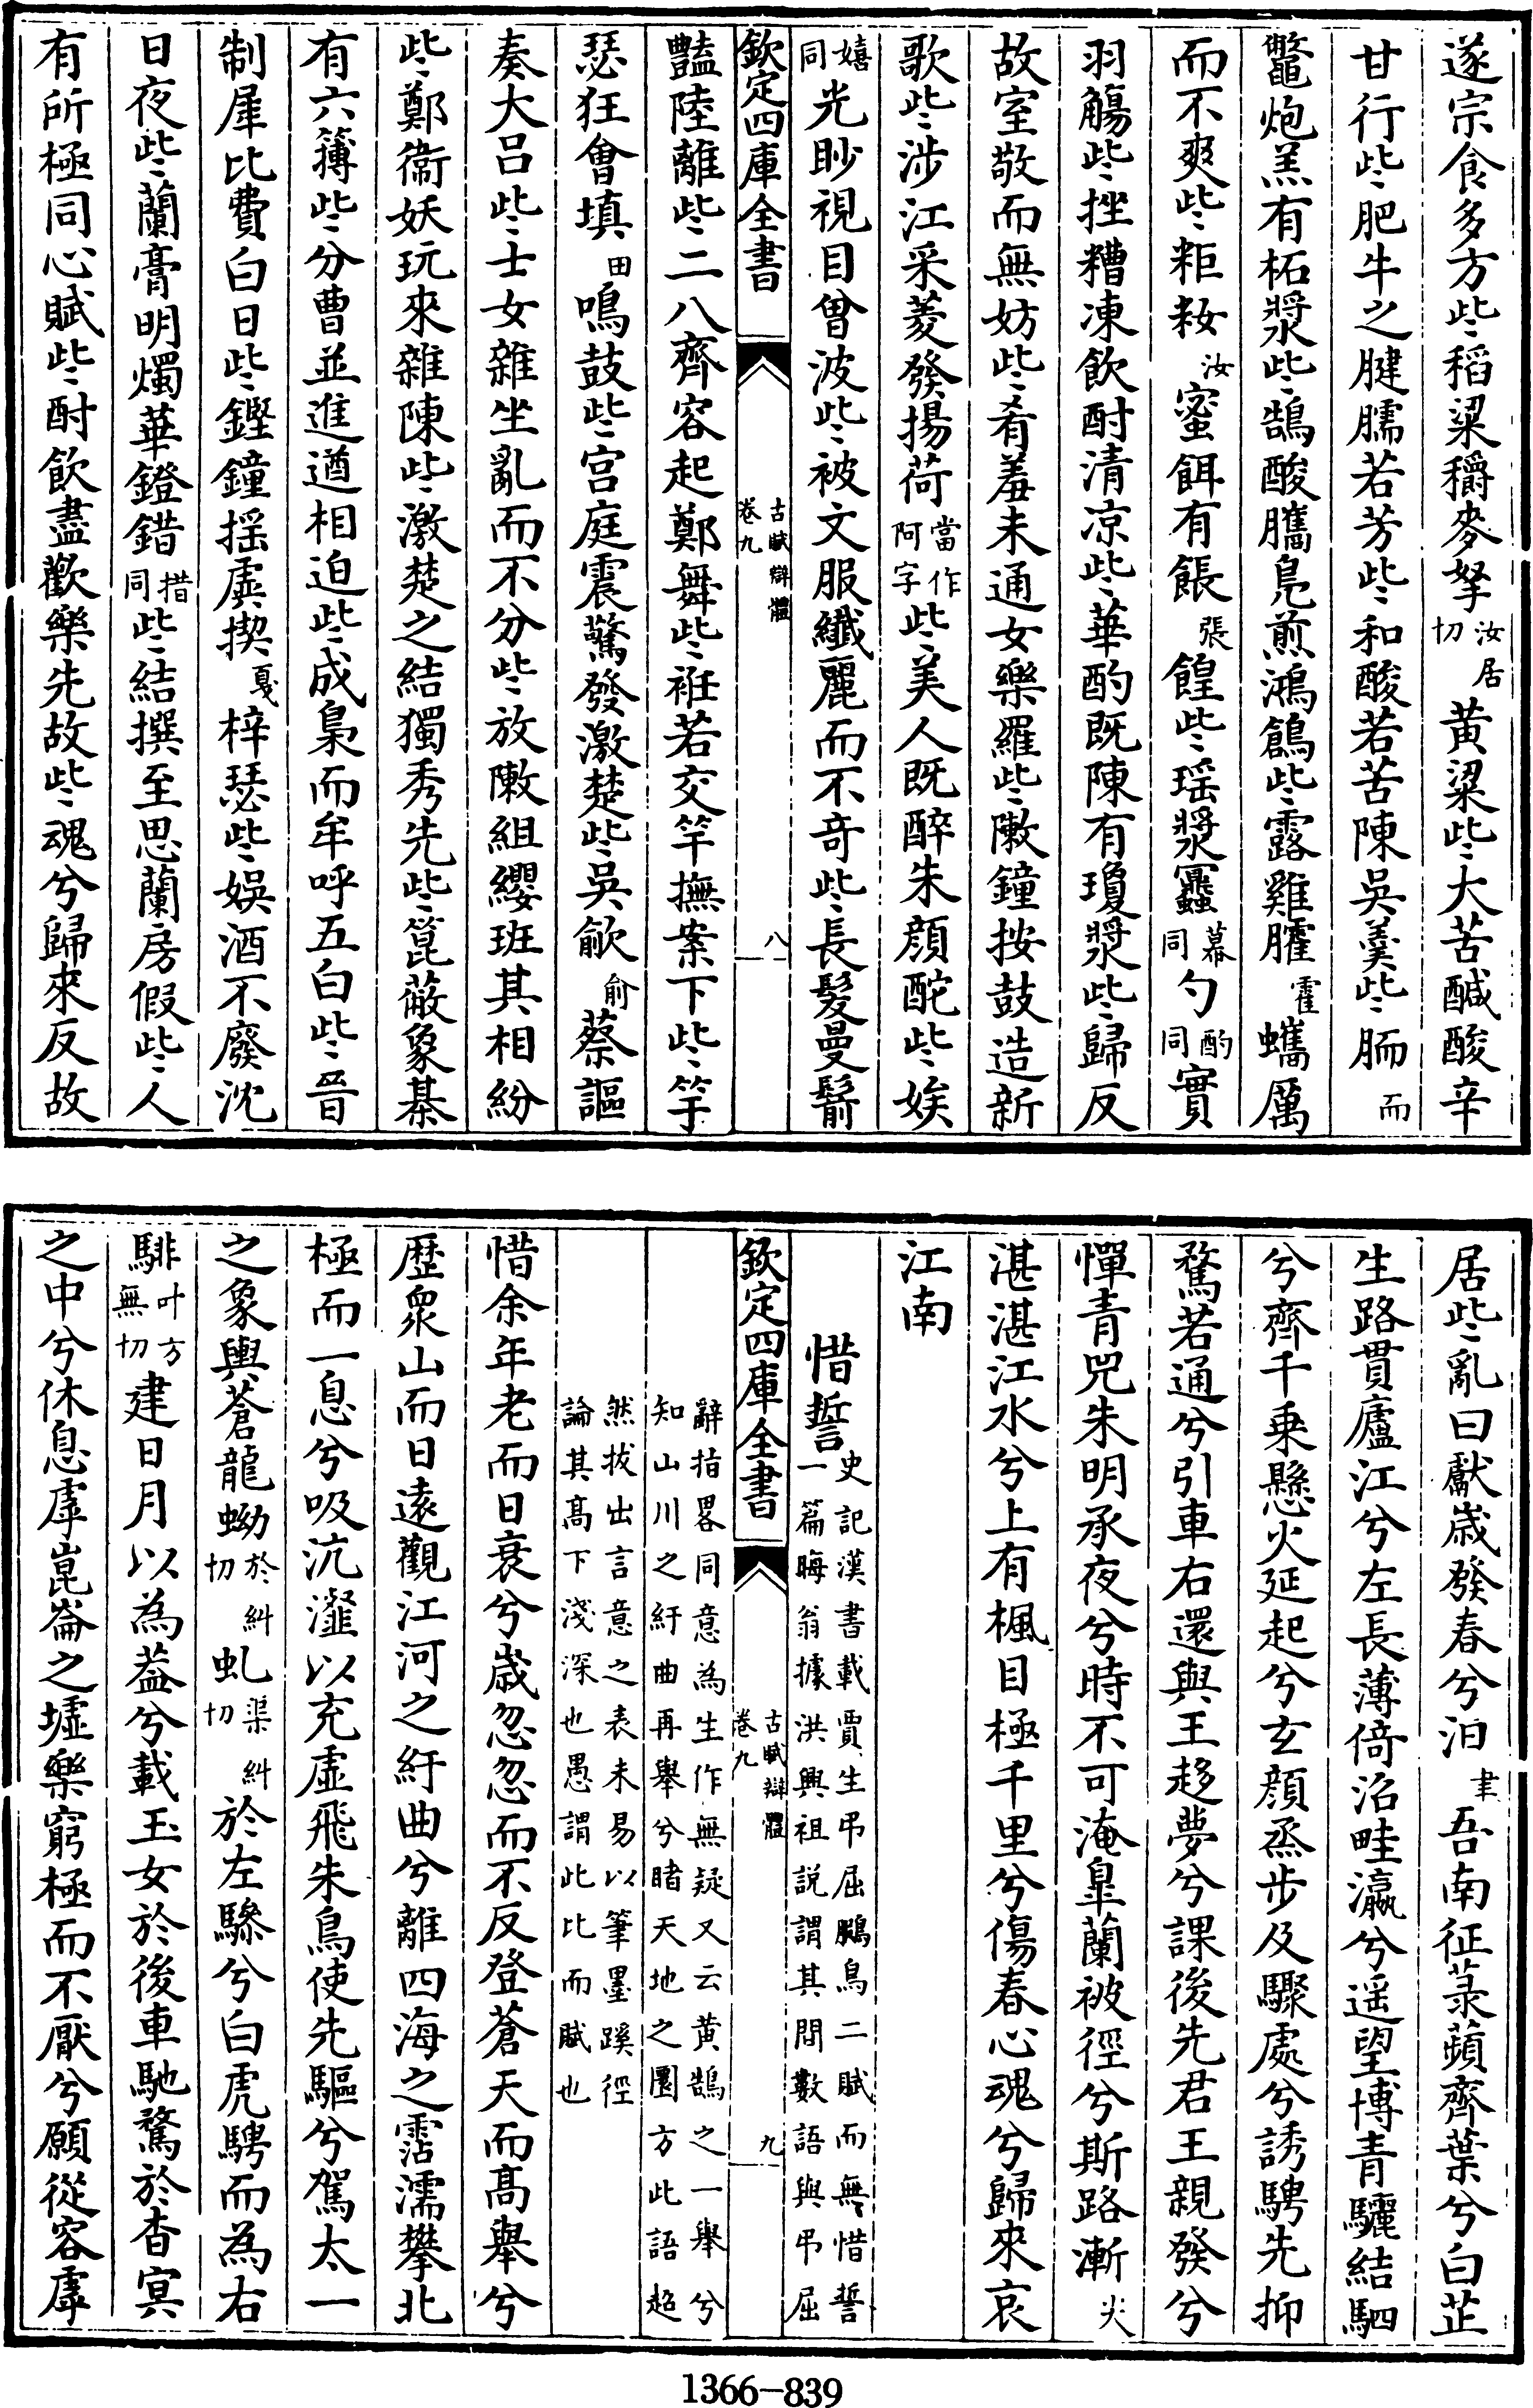 遂宗食多方些稻粢穱麥挐汝居切黄粱些大苦醎酸辛
甘行些肥牛之腱臑若芳些和酸若苦陳吳羹些胹而
鼈炮羔有柘漿些鵠酸臇鳬煎鴻鶬些露雞臛霍蠵厲
而不爽些粔籹汝蜜餌有餦張餭些瑶漿蠠冪同勺酌同實
羽觴些挫糟凍飲酎清凉些華酌既陳有瓊漿些歸反
故室敬而無妨些肴羞未通女樂羅些敶鐘按鼓造新
歌些涉江采菱發揚荷當作阿字些美人既醉朱顔酡些娭
嬉同光眇視目曾波些被文服纎麗而不奇些長髮曼鬋
欽定四庫全書 古賦辯體卷九 八
豔陸離些二八齊容起鄭舞些袵若交竿撫案下些竽
瑟狂會填田鳴鼓些宫庭震驚發激楚些吳歈俞蔡謳
奏大吕些士女雜坐亂而不分些放敶組纓班其相紛
些鄭衞妖玩來雜陳些激楚之結獨秀先些箟蔽象棊
有六簙些分曹並進遒相迫些成梟而牟呼五白些晉
制犀比費白日些鏗鐘揺虡揳戛梓瑟些娯酒不廢沈
日夜些蘭膏明燭華鐙錯措同些結撰至思蘭房假些人
有所極同心賦些酎飲盡歡樂先故些魂兮歸來反故
居些亂曰獻歲發春兮汩聿吾南征菉蘋齊葉兮白芷
生路貫廬江兮左長薄倚沼畦瀛兮遥望博青驪結駟
兮齊千乗懸火延起兮玄顔烝步及驟處兮誘騁先抑
騖若通兮引車右還與王趍夢兮課後先君王親發兮
憚青兕朱明承夜兮時不可淹臯蘭被徑兮斯路漸尖
湛湛江水兮上有楓目極千里兮傷春心魂兮歸來哀
江南
惜誓史記漢書載賈生弔屈鵩鳥二賦而無惜誓一篇晦翁據洪興祖説謂其間數語與弔屈
欽定四庫全書 古賦辯體卷九 九
辭指畧同意為生作無疑又云黄鵠之一舉兮知山川之紆曲再舉兮睹天地之圜方此語超
然拔出言意之表未易以筆墨蹊徑論其髙下淺深也愚謂此比而賦也
惜余年老而日衰兮歲忽忽而不反登蒼天而髙舉兮
歴衆山而日遠觀江河之紆曲兮離四海之霑濡攀北
極而一息兮吸沆瀣以充虚飛朱鳥使先驅兮駕太一
之象輿蒼龍蚴於糾切虬渠糾切於左驂兮白虎騁而為右
騑叶方無切建日月以為葢兮載玉女於後車馳騖於杳冥
之中兮休息虖崑崙之墟樂窮極而不厭兮願從容虖
1366-839